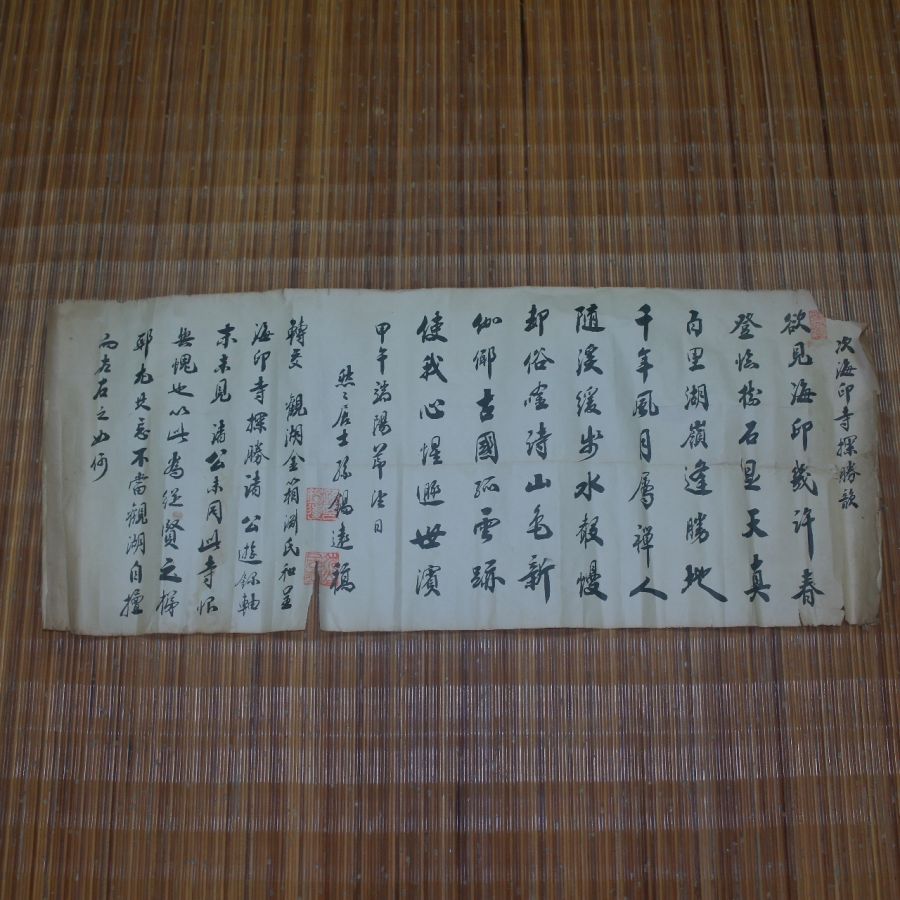 次海印寺探勝韻
欲見海印幾許春
登臨樹石見天真
百里湖嶺逢勝地
千年風月屬禪人
隨溪緩步水聲慢
却俗吟詩山色新
伽倻古國孤雲跡
使我心惺遯世濱
甲午端陽節 日
然然居士孫錫遠稿
轉交 觀湖金箱淵氏和呈
海印寺探勝諸公遊錦軸
未見諸公未同此寺
無愧也以此為賢之
耶尤其忘不當觀湖自擅
而左右之如何